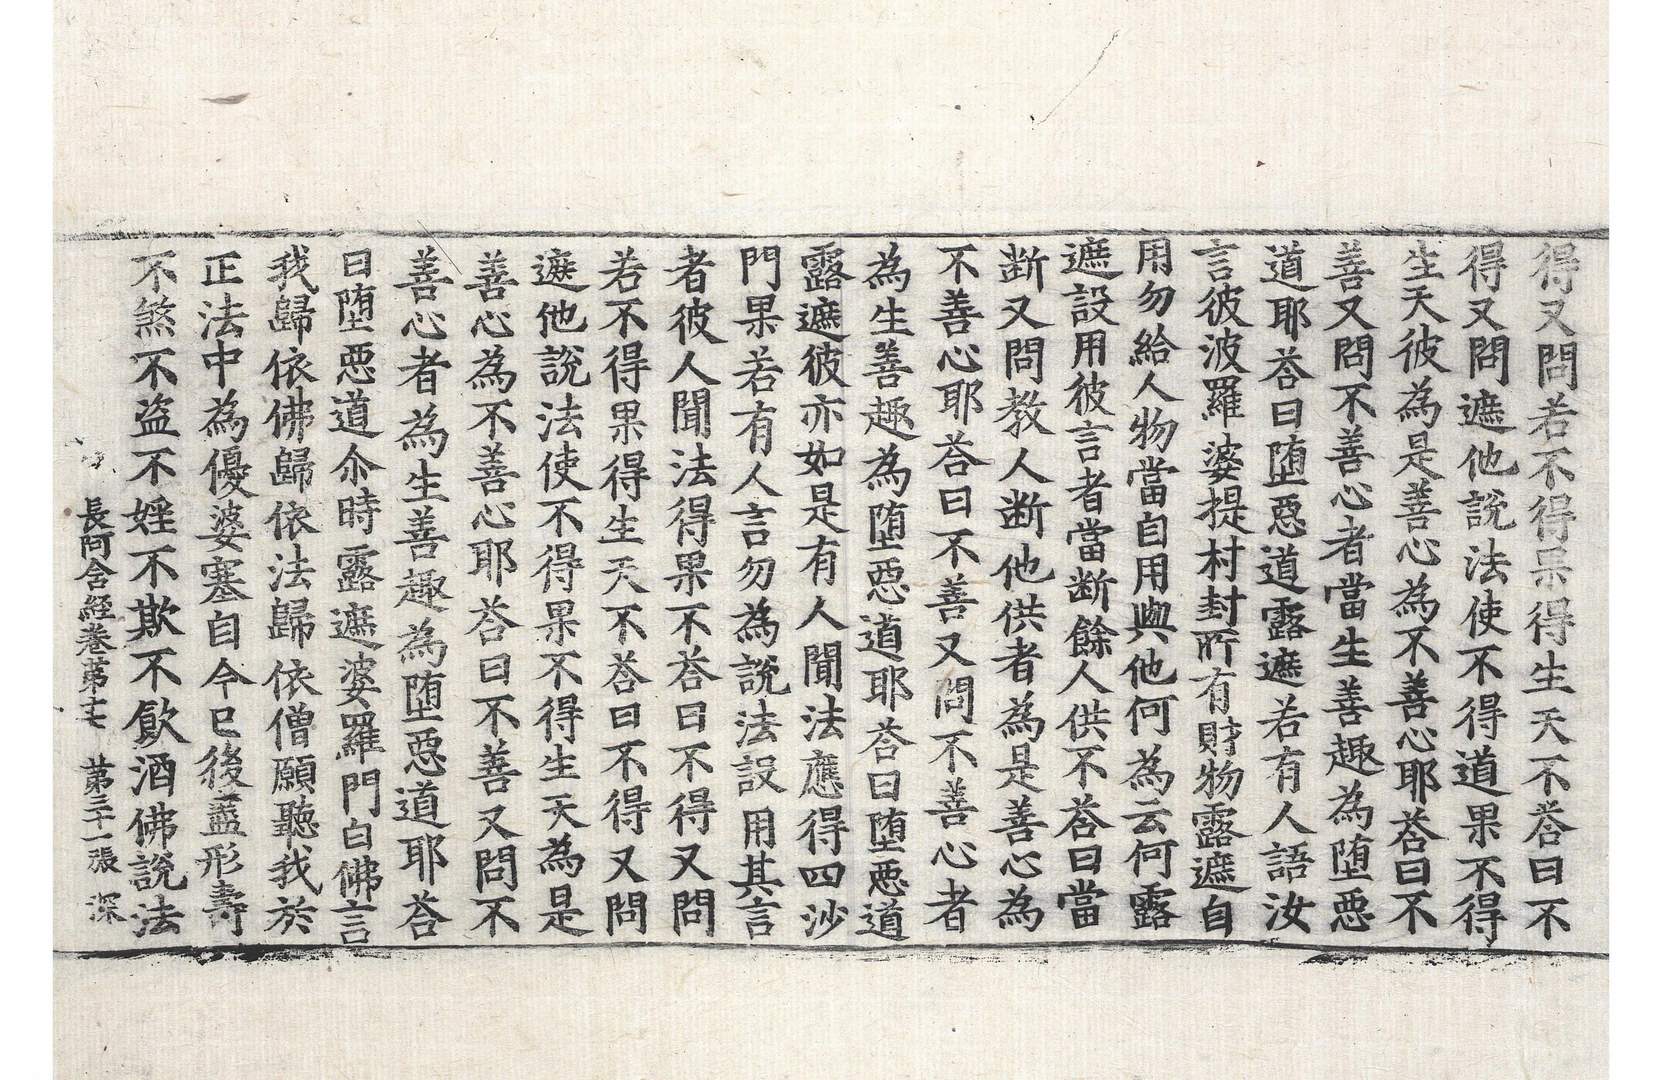 得又問若不得果得生天不荅曰不
得又問遮他說法使不得道果不得
生天彼為是善心為不善心耶荅曰不
善又問不善心者當生善趣為堕惡
道耶荅曰堕惡道露遮若有人語汝
言彼波羅婆提村封所有財物露遮自
用勿給人物當自用與他何為云何露
遮設用彼言者當断餘人供不荅曰當
断又問教人断他供者為是善心為
不善心耶荅曰不善又問不善心者
為生善趣為堕惡道耶荅曰堕惡道
露遮彼亦如是有人聞法應得四沙
門果若有人言勿為說法設用其言
者彼人聞法得果不荅曰不得又問
若不得果得生天不荅曰不得又問
遮他說法使不得果不得生天為是
善心為不善心耶荅曰不善又問不
善心者為生善趣為堕惡道耶荅
曰堕惡道尒時露遮婆羅門白佛言
我歸依佛歸依法歸依僧願聽我於
正法中為優婆塞自今已後盡形壽
不煞不盜不婬不欺不飲酒佛說法
長阿含經卷第十七 第三十一張 深